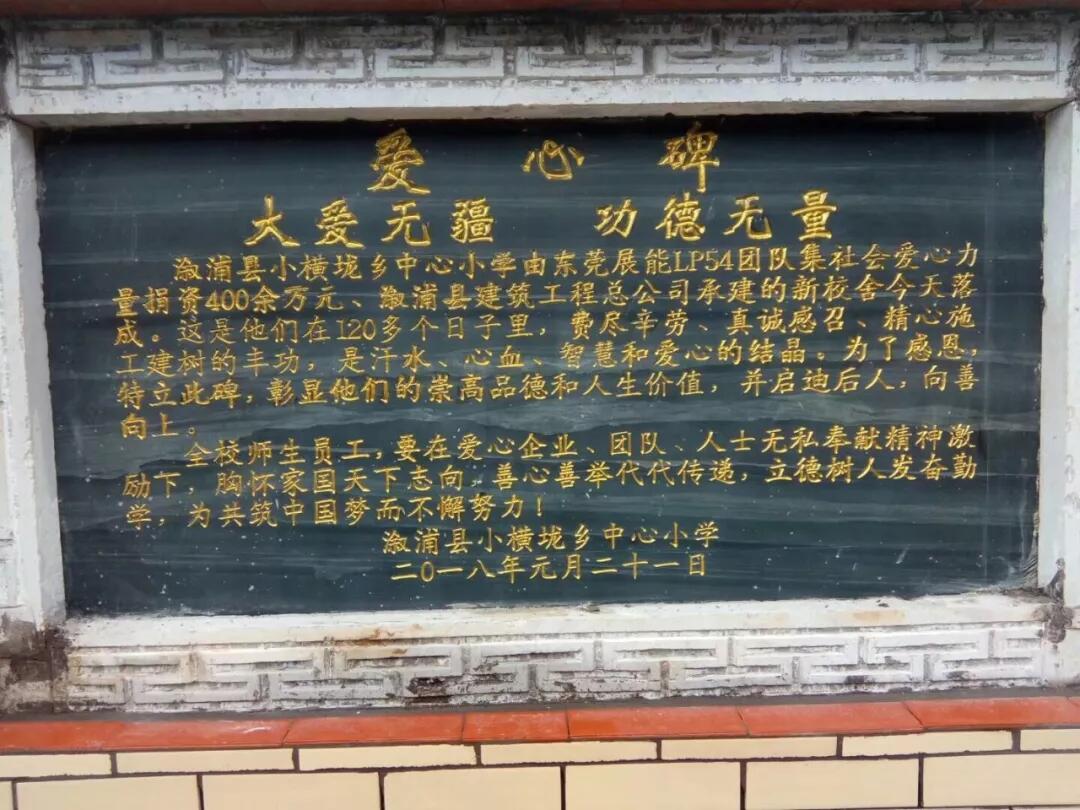 爱心碑
大爱无疆 功德无量
溆浦县小横垅乡中心小学由东莞展能LP54团队集社会爱心力
量捐资400余万元、溆浦县建筑工程总公司承建的新校舍今天落
成。这是他们在120多个日子里，费尽辛劳、真诚感召、精心施
工建树的丰功，是汗水、心血、智慧和爱心的结晶。为了感恩，
特立此碑，彰显他们的崇高品德和人生价值，并启迪后人，向善
向上。
全校师生员工，要在爱心企业、团队、人士无私奉献精神激
励下，胸怀家国天下志向，善心善举代代传递，立德树人发奋勤
学，为共筑中国梦而不懈努力！
溆浦县小横垅乡中心小学
二O一八年元月二十一日